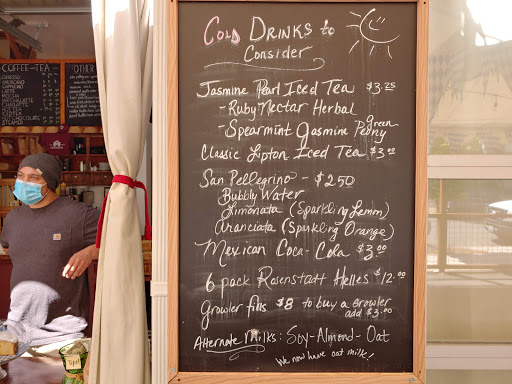 COFFEE - TEA
OTHER
ESPRESSO
AMERICANO
CAPPUCINO
LATTE
MOCHA
CHAI LATTE
ICED TEA
HOT CHOCOLATE
STEAMER
Cold Drinks to
Consider
Jasmine Pearl Iced Tea $3.25
- Ruby Nectar Herbal
- Spearmint Jasmine Green Peony
Classic Lipton Iced Tea $3.00
San Pellegrino - $2.50
Bubbly Water
Limonata (Sparkling Lemn)
Aranciata (Sparkling Orange)
Mexican Coca-Cola $3.00
6 pack Rosenstadt Helles $12.00
Growler fills $8 to buy a growler
add $3.00
Alternate Milks: Soy-Almond-Oat
We now have oat milk!